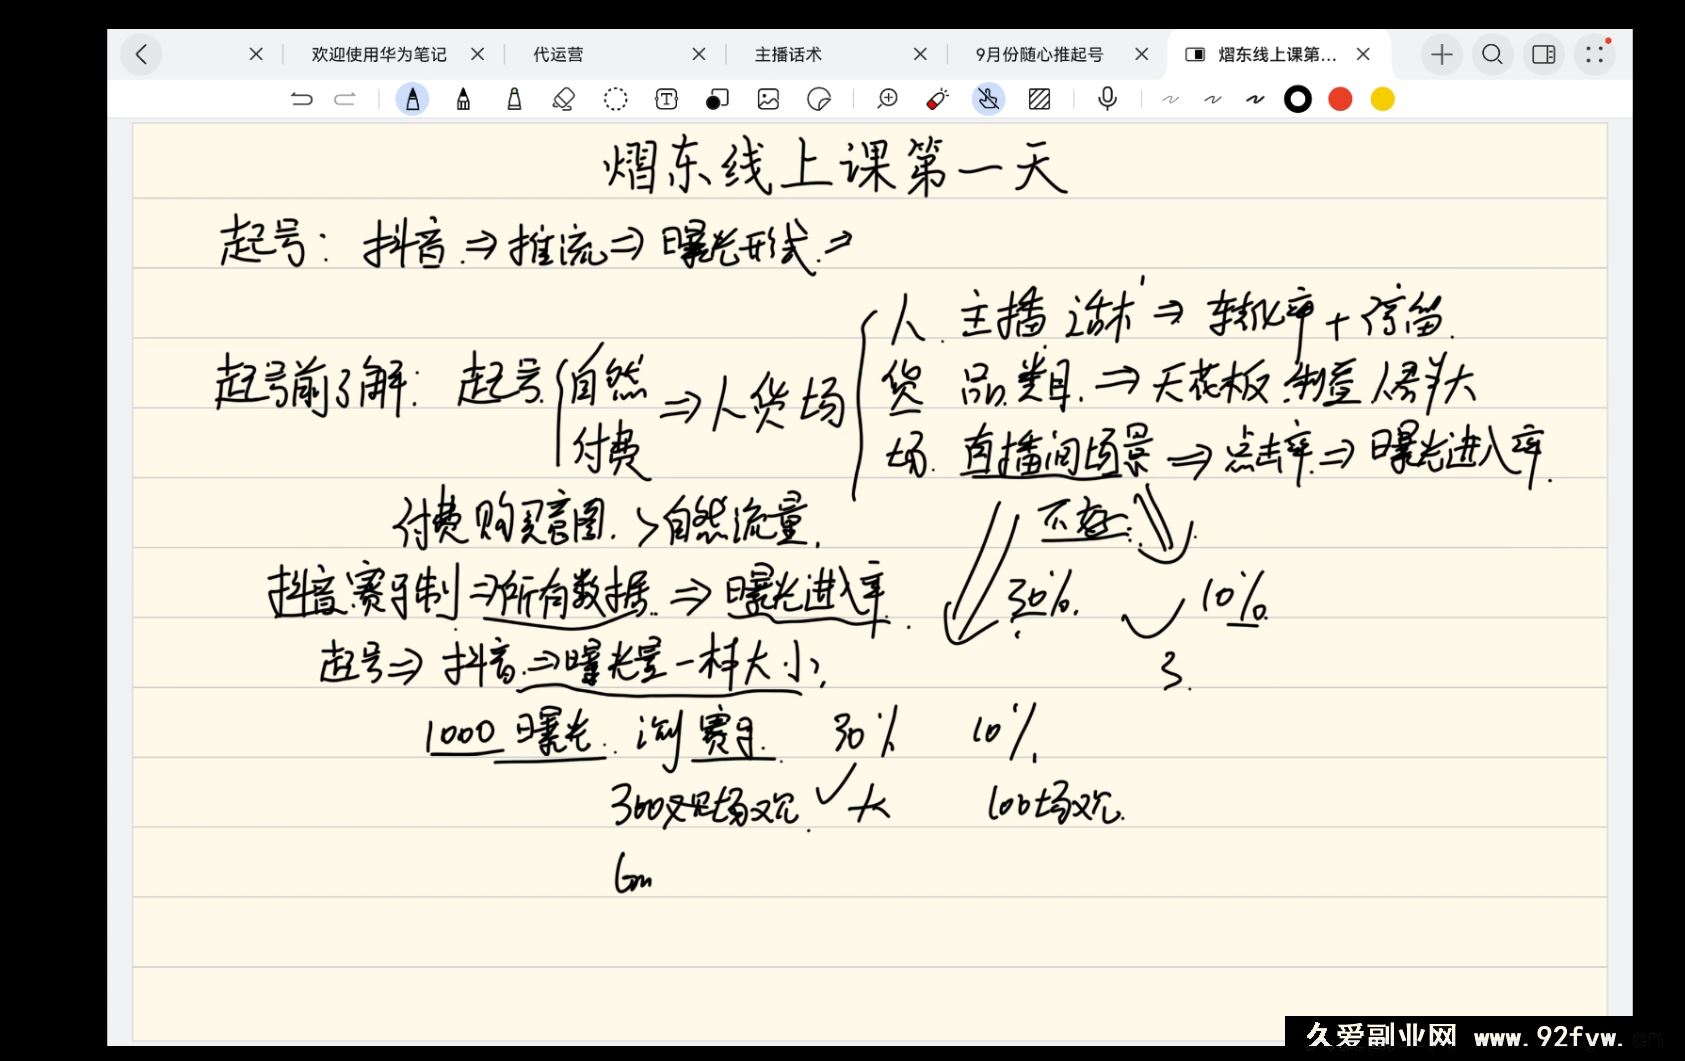 欢迎使用华为笔记 代运营 主播话术 9月份随心推起号 熠东线上课第...
熠东线上课第一天
起号: 抖音 ⇒ 推流 ⇒ 曝光形式. ⇒
人. 主播 话术 ⇒ 转化率 + 停留.
起号前了解: 起号 { 自然 付费 ⇒ 人货场
货 品. 类目. ⇒ 天花板 大
场. 直播间场景 ⇒ 点击率. ⇒ 曝光进入率.
付费购买意图. > 自然流量.
不好.
抖音.赛马制 ⇒ 所有数据. ⇒ 曝光进入率.
30%. 10%.
起号 ⇒ 抖音. ⇒ 曝光量一样大小,
3.
1000 曝光. 赛马. 30% 10%.
300 场观. 大 100场观.
6m
久爱副业网 www.92fyw.cn